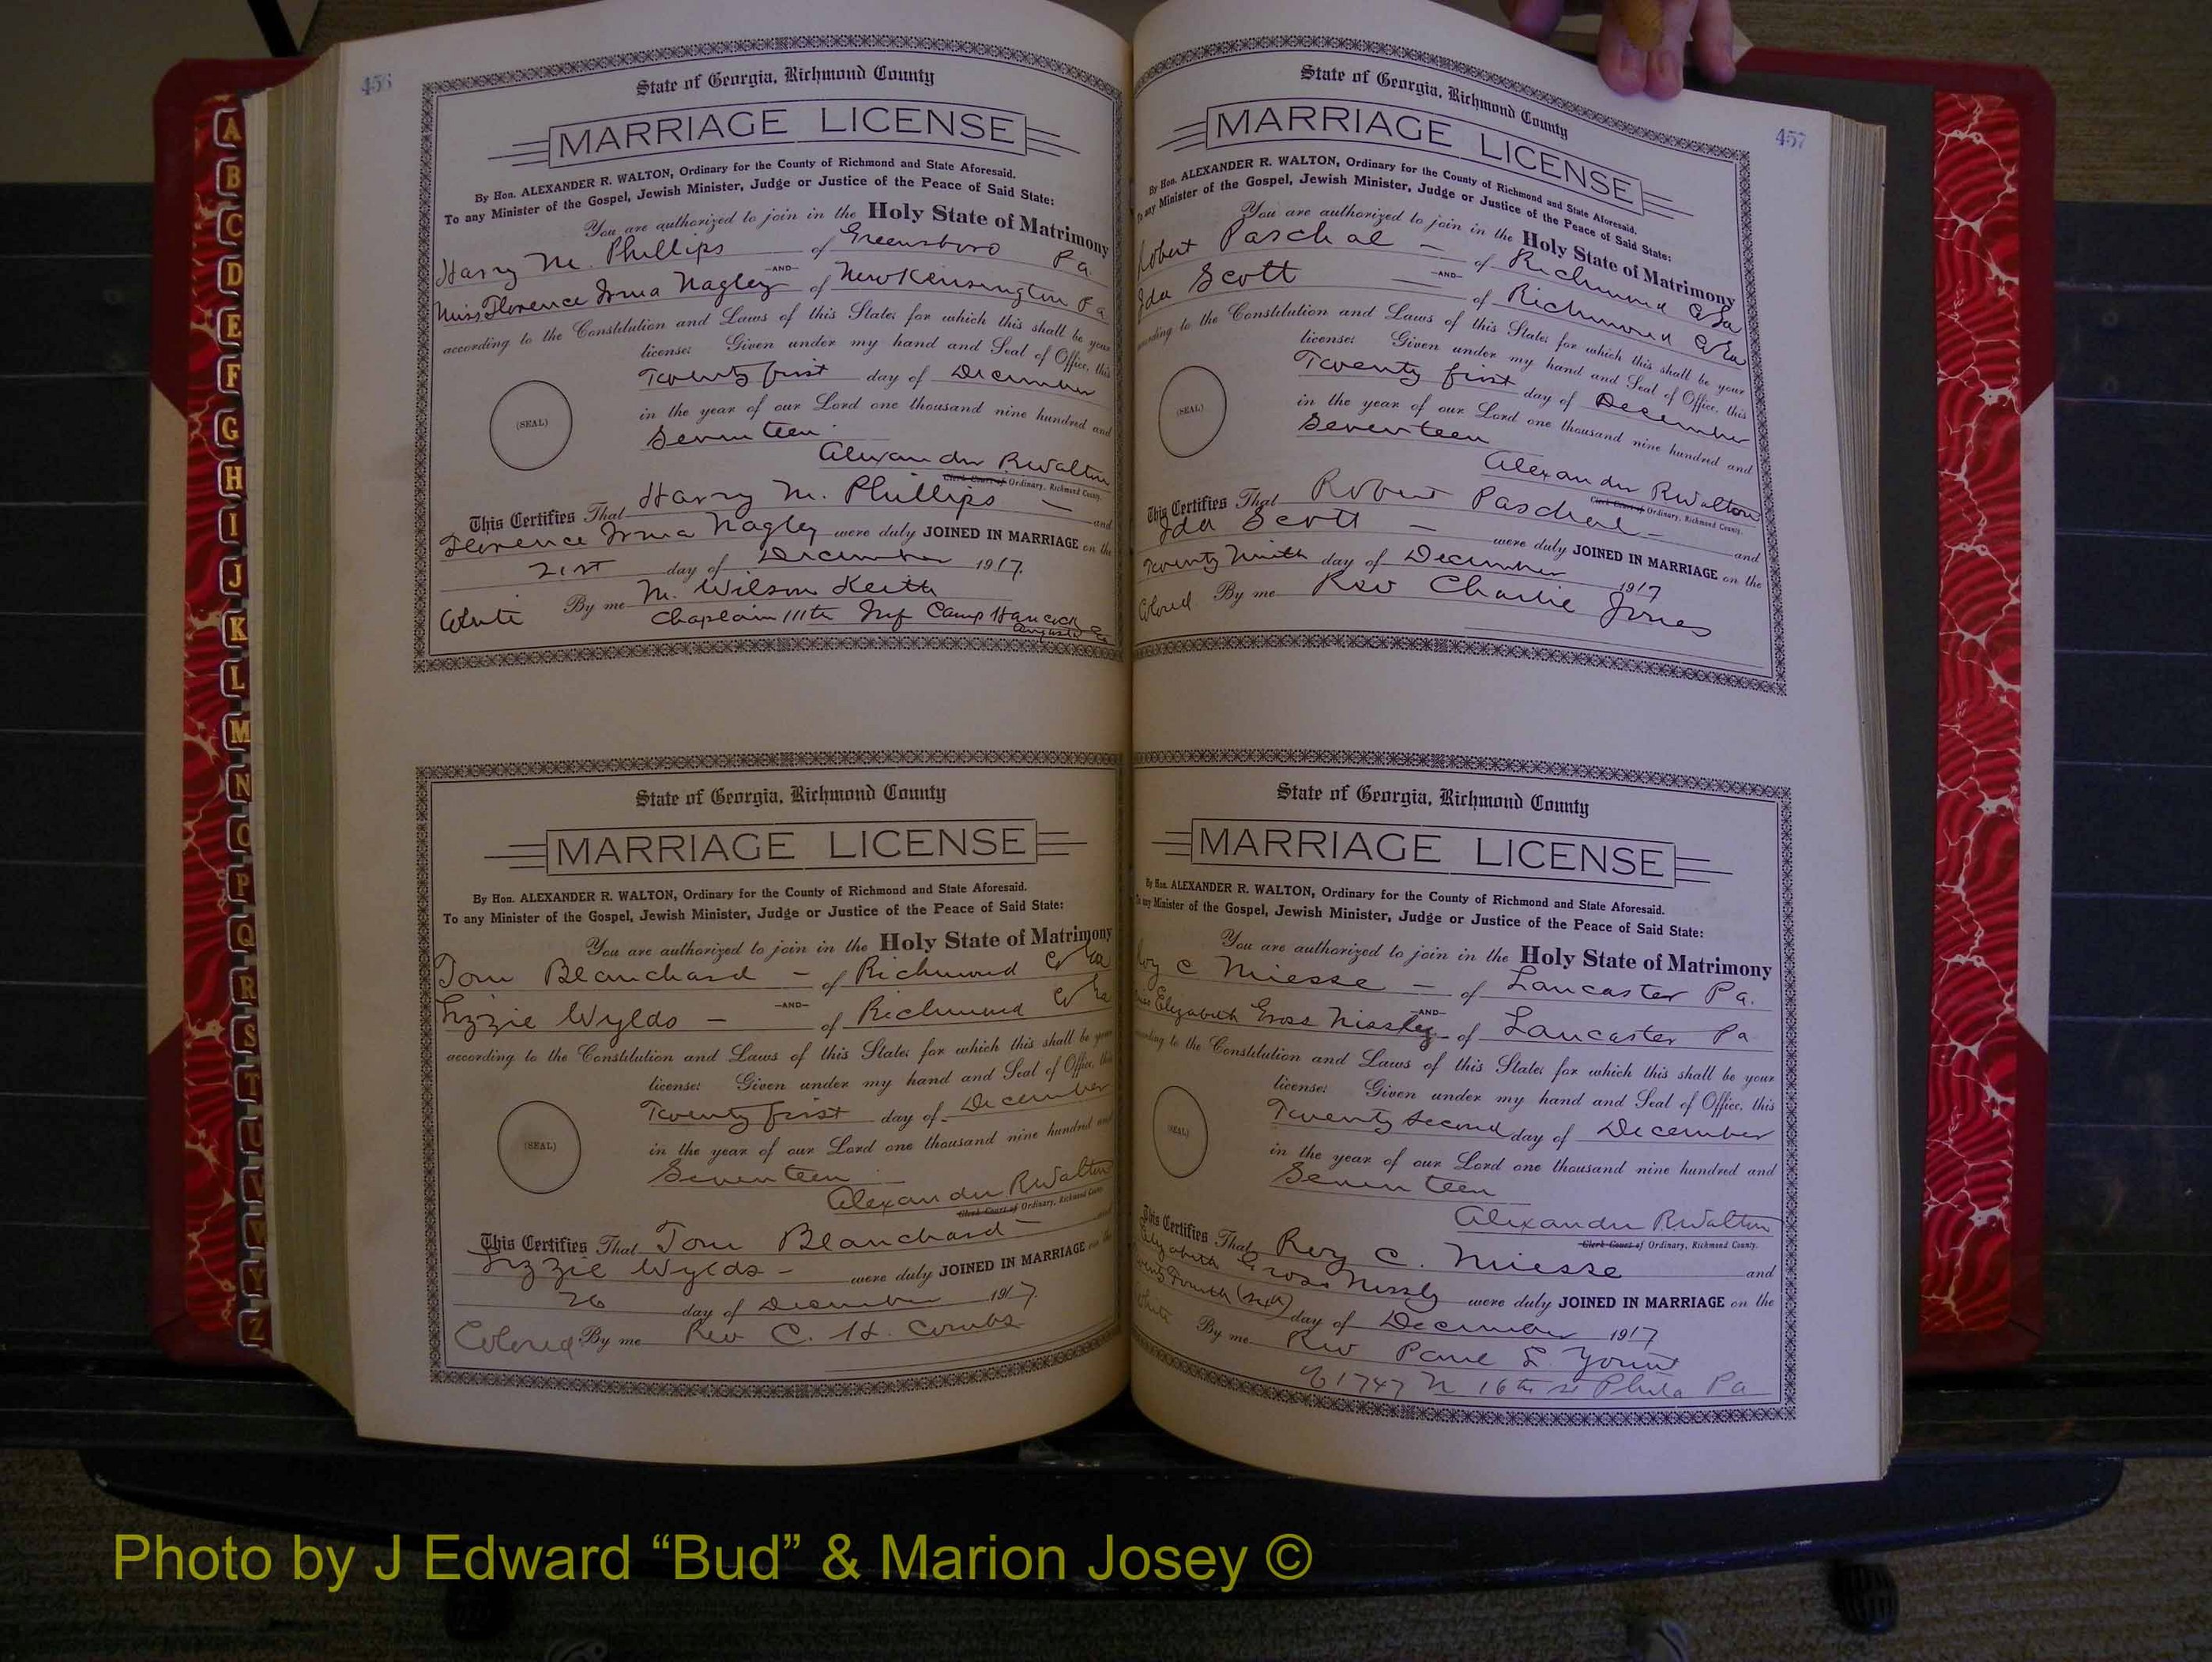 456
State of Georgia, Richmond County
MARRIAGE LICENSE
By Hon. ALEXANDER R. WALTON, Ordinary for the County of Richmond and State Aforesaid.
To any Minister of the Gospel, Jewish Minister, Judge or Justice of the Peace of Said State:
You are authorized to join in the Holy State of Matrimony
Harry M. Phillips of Greensboro Pa.
—AND—
Miss Florence Irma Nagley of New Kensington Pa
according to the Constitution and Laws of this State; for which this shall be your
license: Given under my hand and Seal of Office, this
Twenty first day of December
in the year of our Lord one thousand nine hundred and
Seventeen
(SEAL)
Alexander R Walton
Clerk Court of Ordinary, Richmond County.
This Certifies That Harry M. Phillips — and
Florence Irma Nagley were duly JOINED IN MARRIAGE on the
21st day of December 1917.
White By me M. Wilson Keith
Chaplain 111th Inf Camp Hancock
Augusta Ga
State of Georgia, Richmond County
MARRIAGE LICENSE
By Hon. ALEXANDER R. WALTON, Ordinary for the County of Richmond and State Aforesaid.
To any Minister of the Gospel, Jewish Minister, Judge or Justice of the Peace of Said State:
You are authorized to join in the Holy State of Matrimony
Tom Blanchard — of Richmond Co Ga
—AND—
Lizzie Wylds — of Richmond Co Ga
according to the Constitution and Laws of this State; for which this shall be your
license: Given under my hand and Seal of Office, this
Twenty first day of December
in the year of our Lord one thousand nine hundred and
Seventeen
(SEAL)
Alexander R Walton
Clerk Court of Ordinary, Richmond County.
This Certifies That Tom Blanchard — and
Lizzie Wylds — were duly JOINED IN MARRIAGE on the
26 day of December 1917.
Colored By me Rev C. H. Combs
457
State of Georgia, Richmond County
MARRIAGE LICENSE
By Hon. ALEXANDER R. WALTON, Ordinary for the County of Richmond and State Aforesaid.
To any Minister of the Gospel, Jewish Minister, Judge or Justice of the Peace of Said State:
You are authorized to join in the Holy State of Matrimony
Robert Paschal — of Richmond Co Ga
—AND—
Ida Scott of Richmond Co Ga
according to the Constitution and Laws of this State; for which this shall be your
license: Given under my hand and Seal of Office, this
Twenty first day of December
in the year of our Lord one thousand nine hundred and
Seventeen
(SEAL)
Alexander R Walton
Clerk Court of Ordinary, Richmond County.
This Certifies That Robert Paschal — and
Ida Scott — were duly JOINED IN MARRIAGE on the
Twenty Ninth day of December 1917
Colored By me Rev Charlie Jones
State of Georgia, Richmond County
MARRIAGE LICENSE
By Hon. ALEXANDER R. WALTON, Ordinary for the County of Richmond and State Aforesaid.
To any Minister of the Gospel, Jewish Minister, Judge or Justice of the Peace of Said State:
You are authorized to join in the Holy State of Matrimony
Roy C Miesse — of Lancaster Pa.
—AND—
Miss Elizabeth Gross Nissley of Lancaster Pa
according to the Constitution and Laws of this State; for which this shall be your
license: Given under my hand and Seal of Office, this
Twenty Second day of December
in the year of our Lord one thousand nine hundred and
Seventeen
(SEAL)
Alexander R Walton
Clerk Court of Ordinary, Richmond County.
This Certifies That Roy C. Miesse and
Elizabeth Gross Nissly were duly JOINED IN MARRIAGE on the
Twenty Fourth (24th) day of December 1917
White By me Rev Paul L. Yount
of 1747 N 16th St Phila Pa
A
B
C
D
E
F
G
H
I
J
K
L
M
N
O
P
Q
R
S
T
U
V
W
Y
Z
Photo by J Edward “Bud” & Marion Josey ©